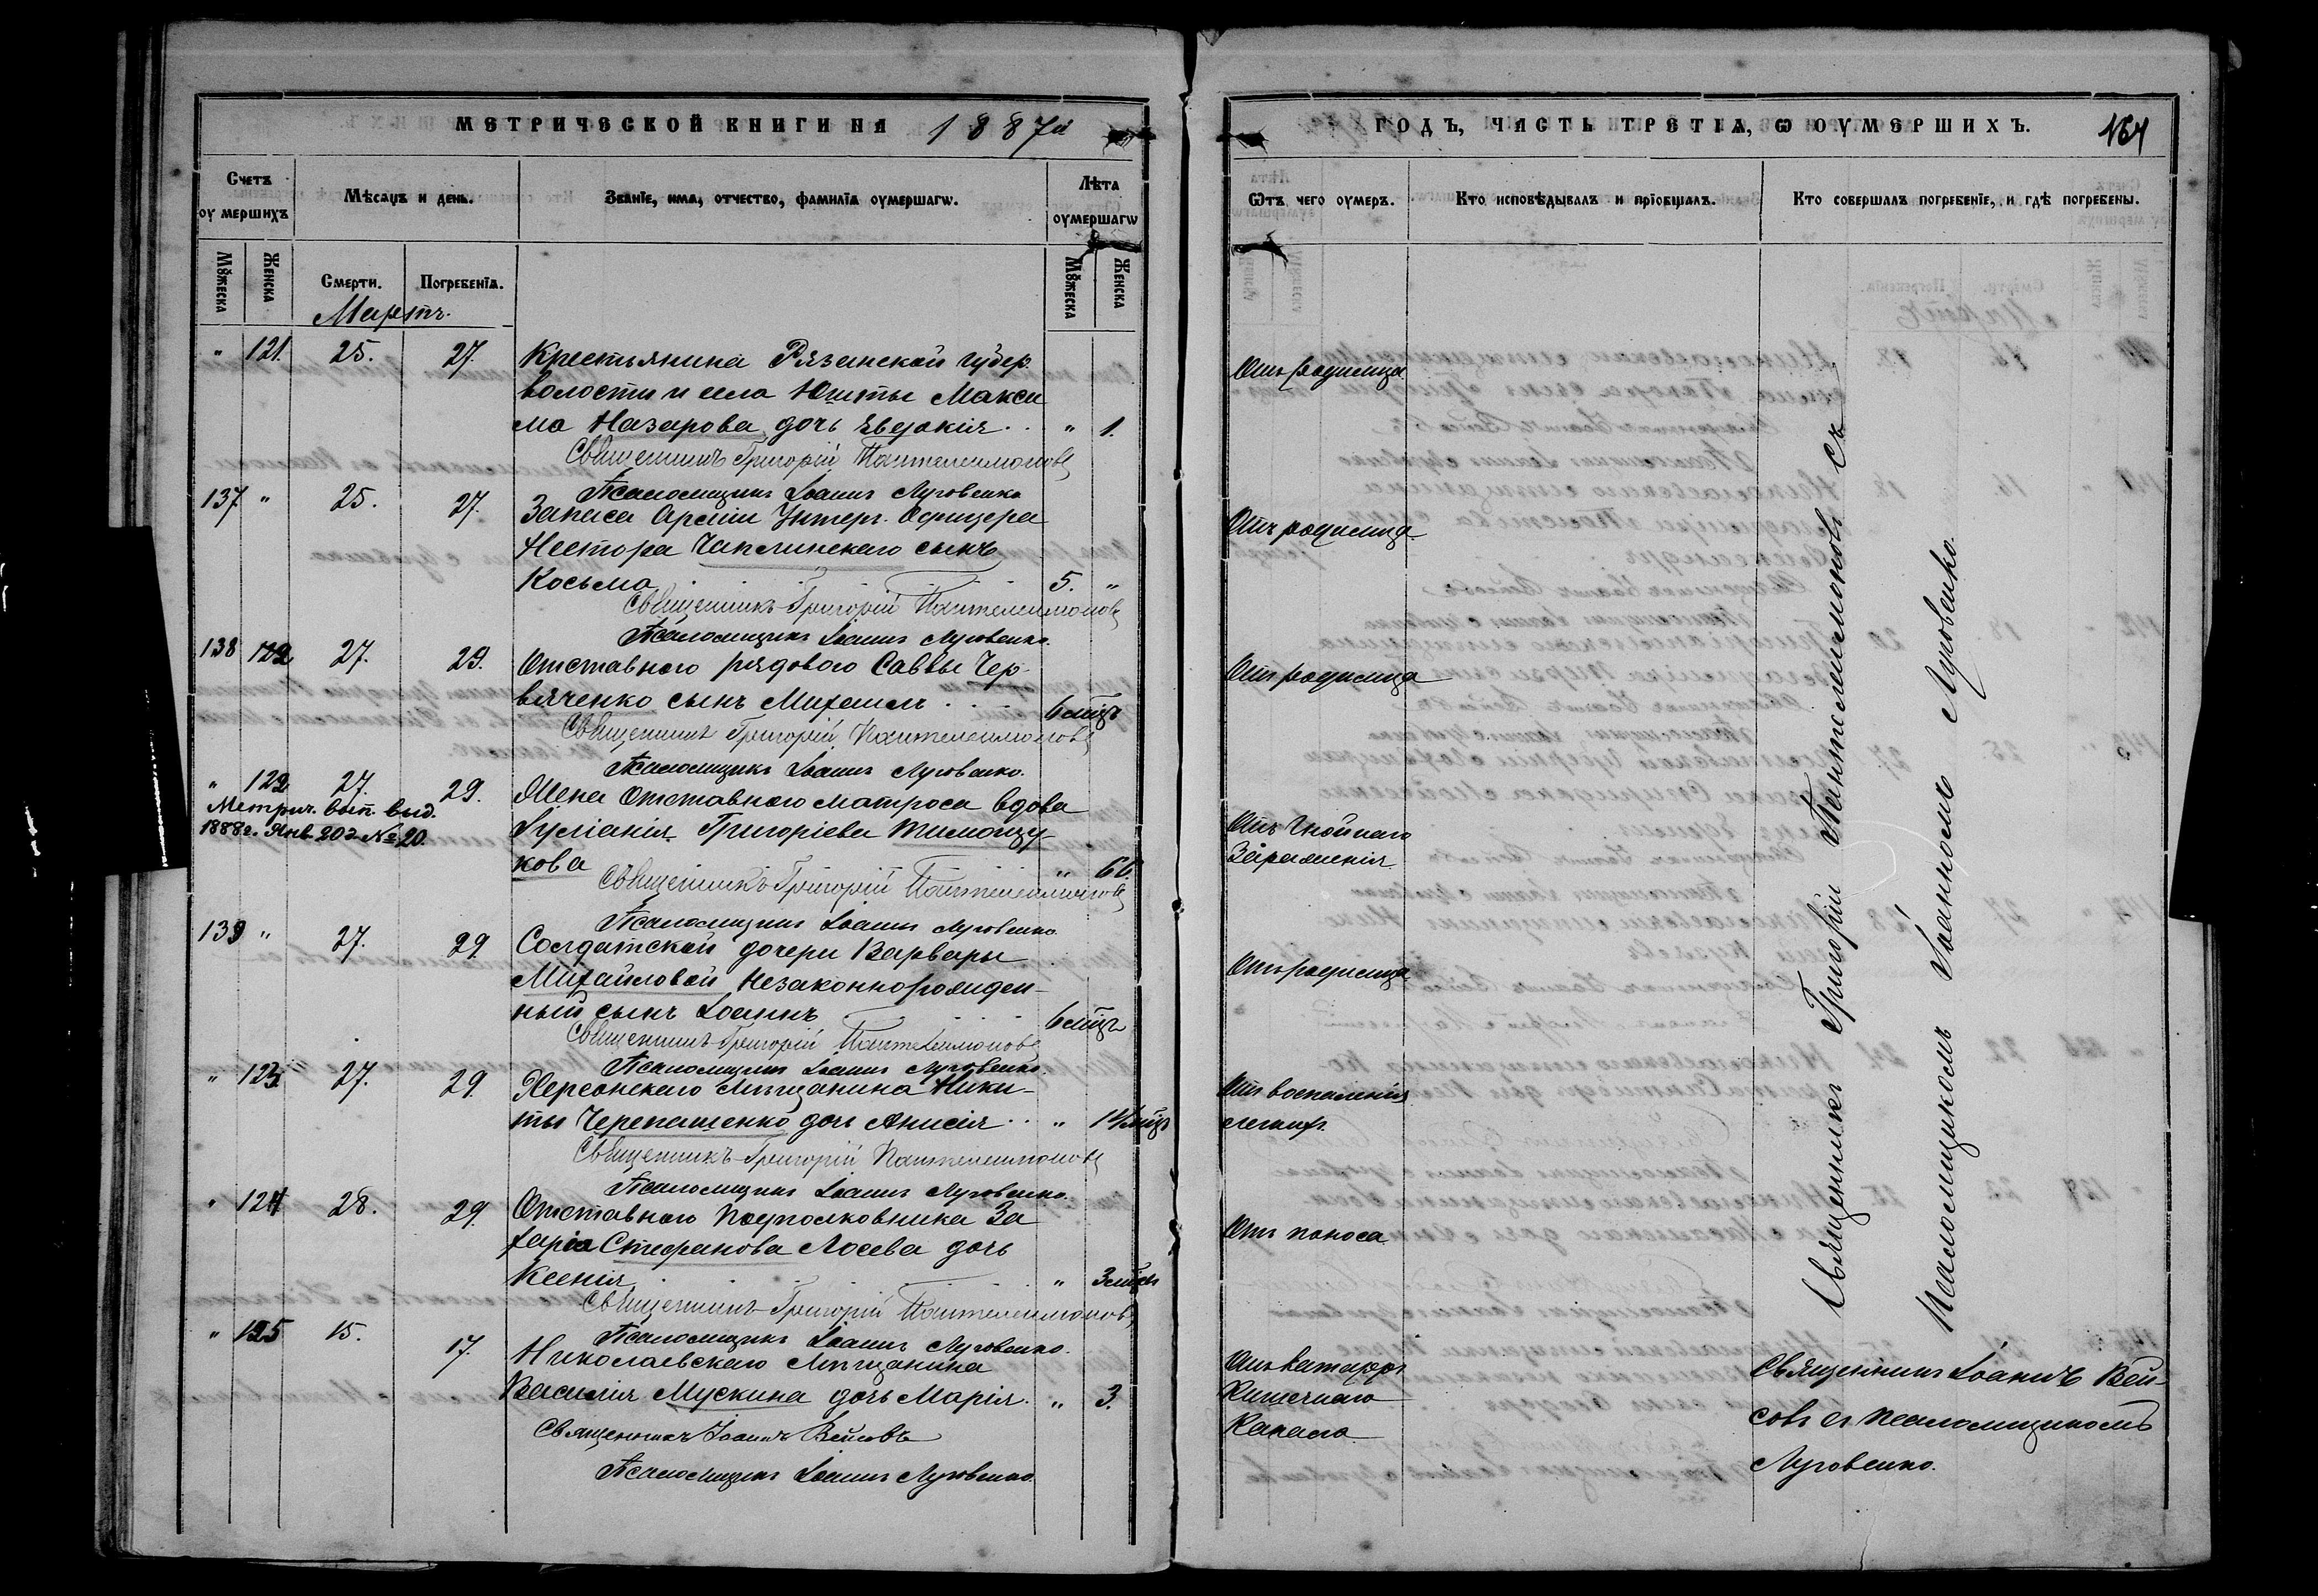 МЕТРИЧЕСКОЙ КНИГИ НА 1887й
Счетъ оумершихъ
Мѣсяцъ и день.
Званїе, имя, отчество, фамилїя оумершагѡ.
Лѣта оумершагѡ
Мꙋжеска
Женска
Смерти.
Погребенїя.
Мꙋжеска
Женска
Мартъ.
" 121. 25. 27. Крестьянина Рязанской губер.
волости и села Макси
ма Назарова дочь Евдокія . . " 1.
Священникъ Григорій Пантелеимоновъ
Псаломщикъ Іоаннъ Луговенко
137. " 25. 27. Запаса Арміи Унтеръ-Офицера
Нестора Чаплинскаго сынъ
Косьма . . . . 5. "
Священникъ Григорій Пантелеимоновъ
Псаломщикъ Іоаннъ Луговенко.
138 122 27. 29. Отставного рядового Саввы Чер-
вяченко сынъ Михаилъ . . . 6 мцъ
Священникъ Григорій Пантелеимоновъ
Псаломщикъ Іоаннъ Луговенко.
" 122 27. 29. Жена Отставного матроса вдова
Метрич. вып. выд.
1888г. Янв. 20г № 20.
Іуліанія Григоріева Тимощу-
кова " 66.
Священникъ Григорій Пантелеимоновъ
Псаломщикъ Іоаннъ Луговенко
139 " 27. 29. Солдатской дочери Варвары
Михайловой незаконнорожден-
ный сынъ Іоаннъ . . . 6 мцъ
Священникъ Григорій Пантелеимоновъ
Псаломщикъ Іоаннъ Луговенко
" 123. 27. 29. Херсонскаго мѣщанина Ники-
ты Черепашенко дочь Анисія . . "
Священникъ Григорій Пантелеимоновъ
Псаломщикъ Іоаннъ Луговенко.
" 124 28. 29. Отставного Подполковника За
харія Стефанова Лосева дочь
Ксенія . . . . " 3 мцъ
Священникъ Григорій Пантелеимоновъ
Псаломщикъ Іоаннъ Луговенко.
" 125 15. 17. Николаевскаго мѣщанина
Василія Мускина дочь Марія. " 3.
Священникъ Іоаннъ Вейсовъ
Псаломщикъ Іоаннъ Луговенко.
ГОДЪ, ЧАСТЬ ТРЕТІѦ, Ѡ ОУМЕРШИХЪ. 164
Ѿ чего оумеръ.
Кто исповѣдывалъ и прїобщалъ.
Кто совершалъ погребенїе, и гдѣ погребены.
Отъ родимца
Отъ родимца
Отъ родимца
Отъ гнойнаго
зараженія
Отъ родимца
Отъ воспаленія
легкихъ
Отъ поноса
Отъ катарра
кишечнаго
канала
Священникъ Григорій Пантелеимоновъ съ
Псаломщикомъ Іоанномъ Луговенко.
Священникъ Іоаннъ Вей-
совъ съ псаломщикомъ
Луговенко.